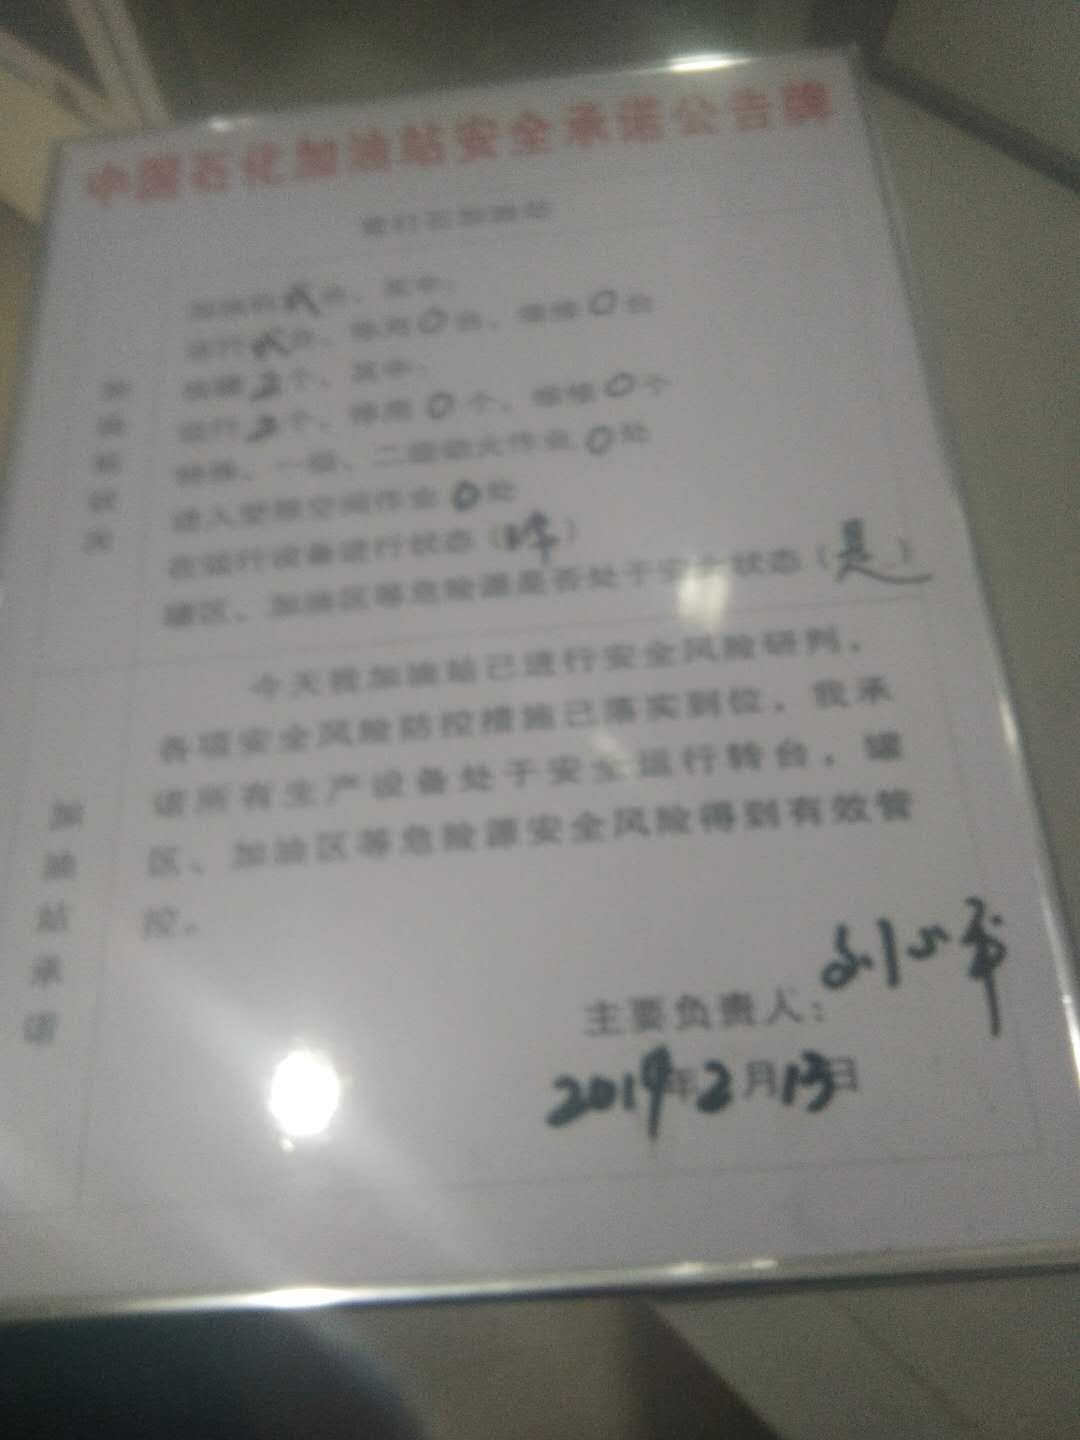 中国石化加油站安全承诺公告牌
加油站
加油机 台，其中：
运行 台，停用0台，维修0台
油罐2个，其中：
运行2个，停用0个，维修0个
特殊、一级、二级动火作业0处
进入受限空间作业0处
在运行设备运行状态（ ）
罐区、加油区等危险源是否处于安全状态（是）
今天我加油站已进行安全风险研判，
各项安全风险防控措施已落实到位，我承
诺所有生产设备处于安全运行转台，罐
区、加油区等危险源安全风险得到有效管
控。
加油站承诺
主要负责人：刘小
2019年2月13日